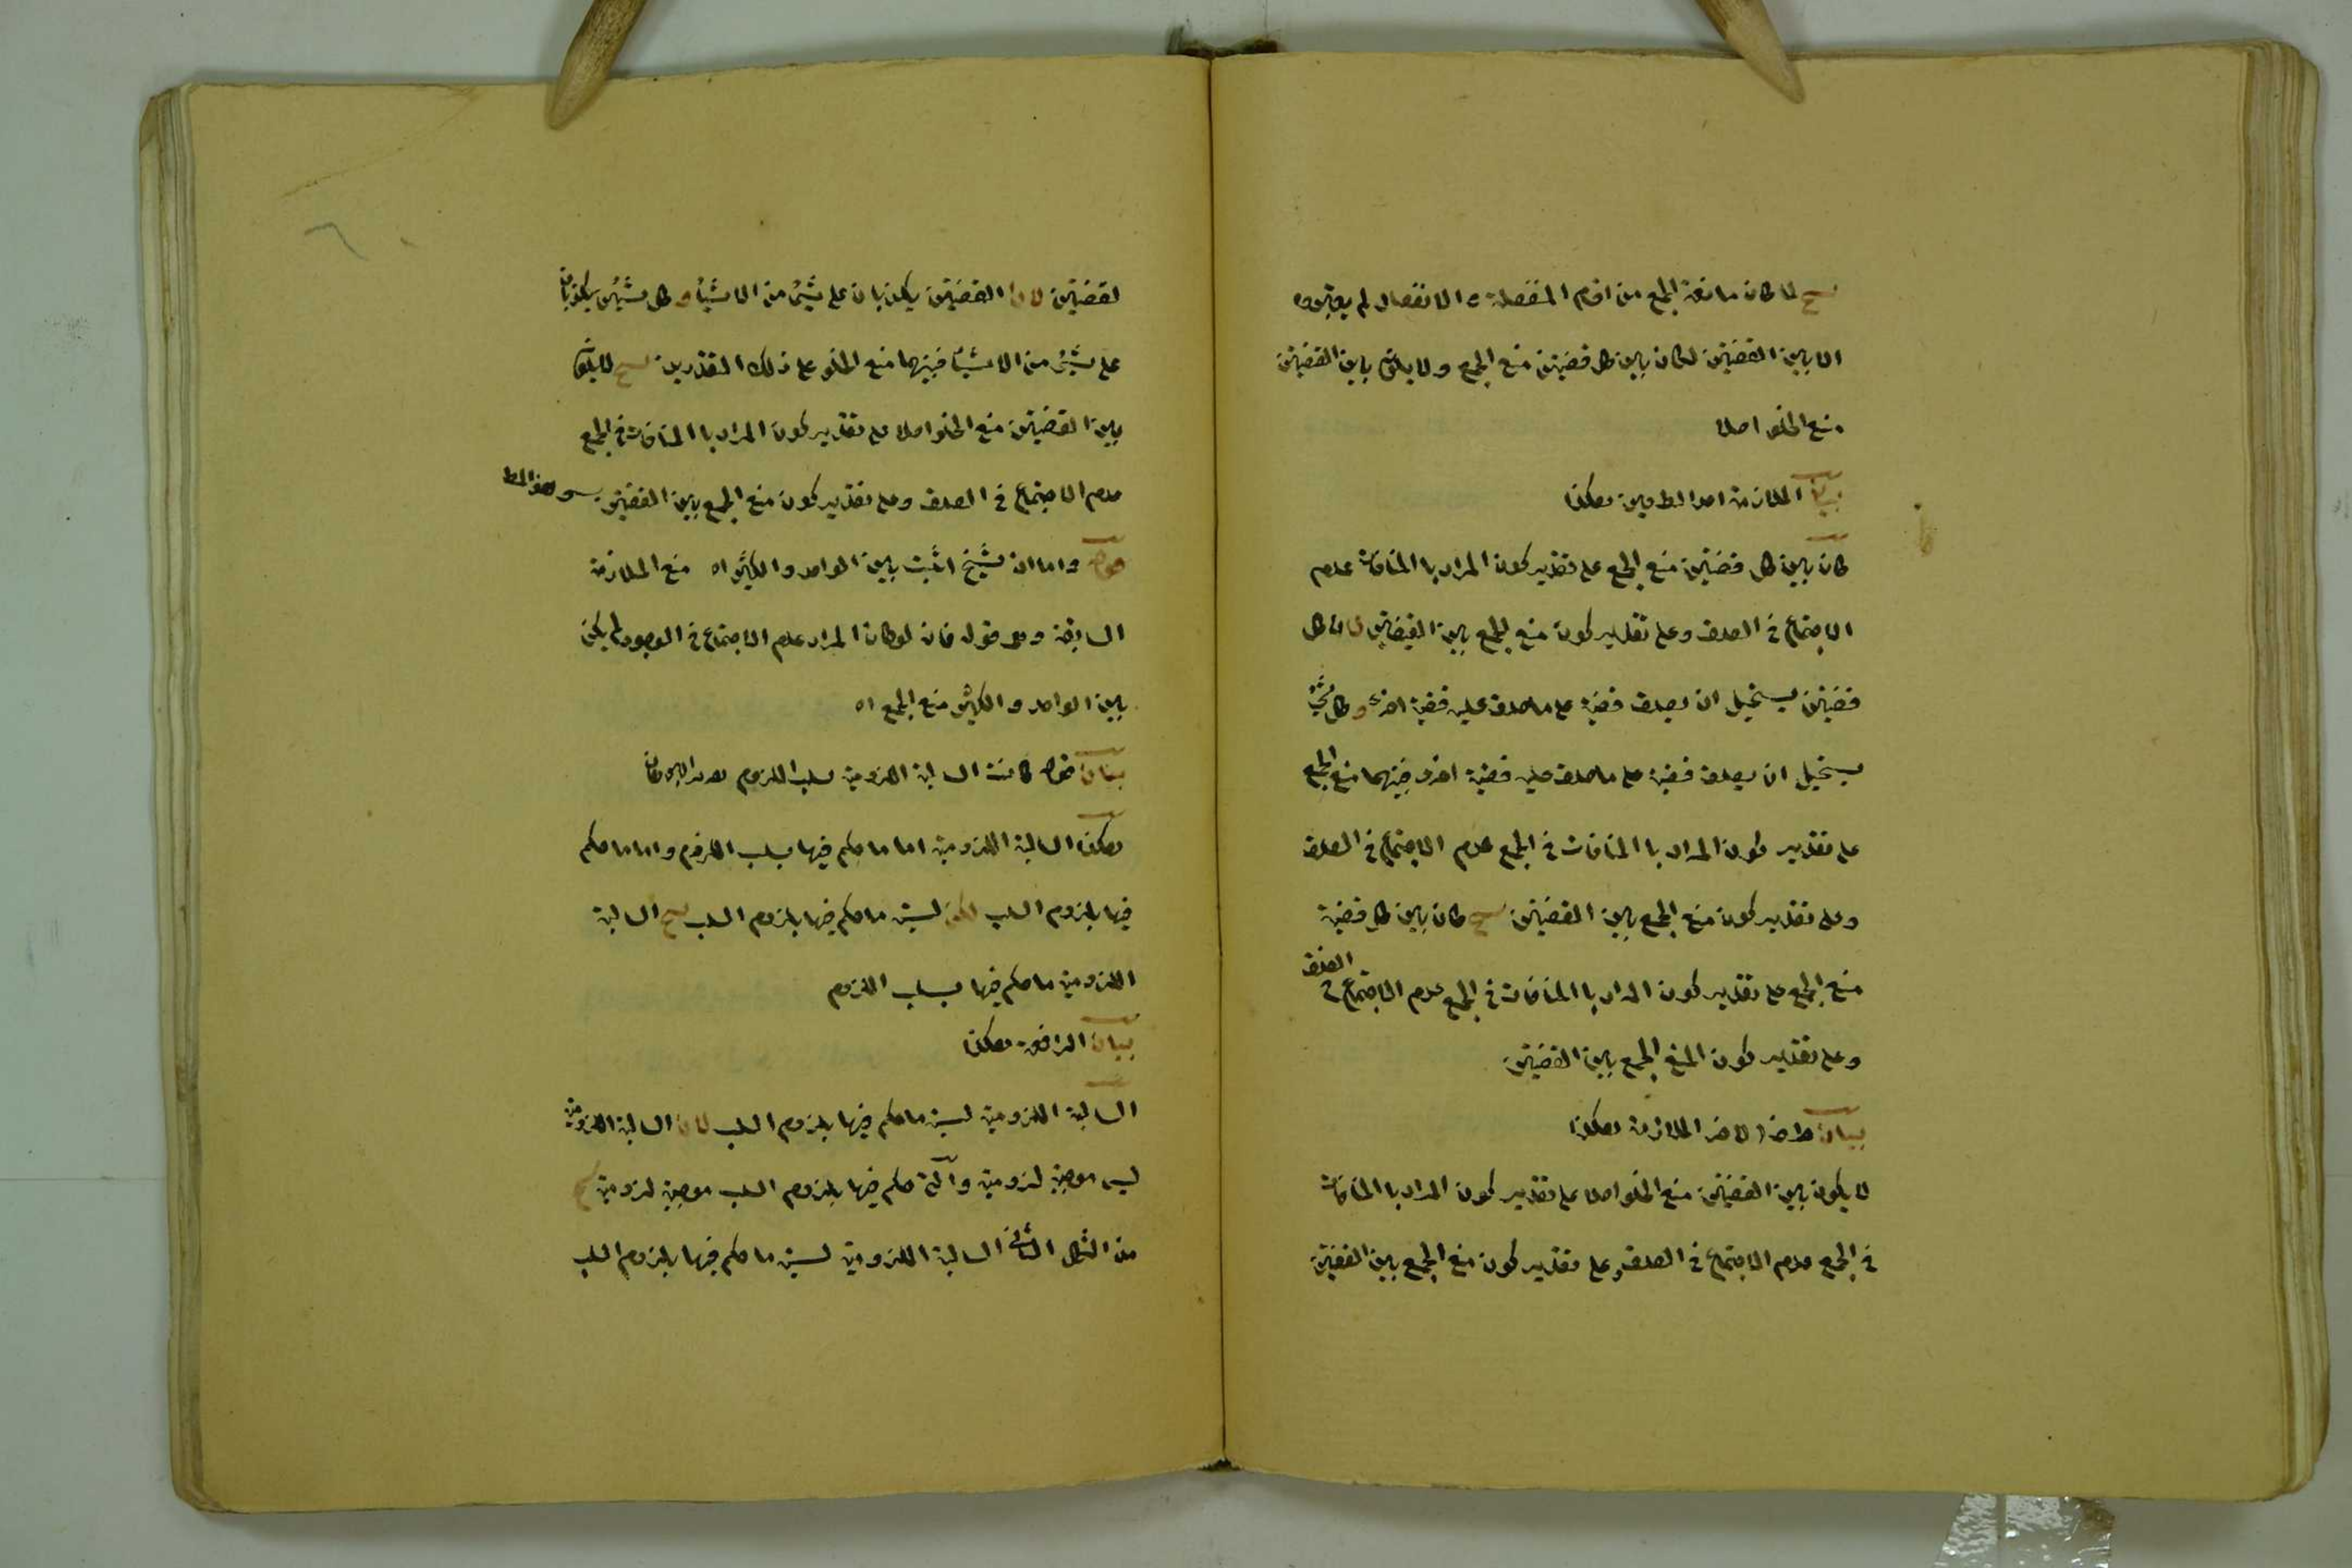 لما كان مانعة الجمع من اقسام المنفصلة والانفصال لم يعتبروه
الا بين القضيتين لكان بين كل قضيتين منع الجمع ولا يكون بين القضيتين
منع الخلو اصلا
بيان الملازمة احد الطرفين هكذا
كان بين كل قضيتين منع الجمع على تقدير كون المراد با المنافات عدم
الاجتماع في الصدق وعلى تقدير كون منع الجمع بين القضيتين لان كل
قضيتين يستحيل ان يصدق قضية على ما صدق عليه قضية اخرى وكل
يستحيل ان يصدق قضية على ما صدق عليه قضية اخرى فبينهما منع الجمع
على تقدير كون المراد با المنافات في الجمع عدم الاجتماع في الصدق
وعلى تقدير كون منع الجمع بين القضيتين كان بين كل قضية
منع الجمع على تقدير كون المراد با المنافات في الجمع عدم الاجتماع في الصدق
وعلى تقدير كون المنع الجمع بين القضيتين
بيان الملازمة هكذا
لا يكون بين القضيتين منع الخلو اصلا على تقدير كون المراد با المنافات
في الجمع عدم الاجتماع في الصدق وعلى تقدير كون منع الجمع بين القضيتين
لقضيتين لان القضيتين يكذبان على شيئ من الاشياء وكل شيئين يكذبان
على شيئ من الاشياء فبينهما منع الخلو على ذلك التقديرين لا يكون
بين القضيتين منع الخلو اصلا على تقدير كون المراد با المنافات في الجمع
عدم الاجتماع في الصدق وعلى تقدير كون منع الجمع بين القضيتين وهو المط
قوله واما ان شيخ اثبت بين الواحد والكثير اه منع الملازمة
السابقة وهو قوله فان لو كان المراد عدم الاجتماع في الوجود لم يكن
بين الواحد والكثير منع الجمع اه
بيان قوله كانت السالبة اللزومية سلب اللزوم
هكذا السالبة اللزومية اما ما حكم فيها بسلب اللزوم واما ما حكم
فيها بلزوم السلب لكن ليست ما حكم فيها بلزوم السلب السالبة
اللزومية ما حكم فيها بسلب اللزوم
بيان الرافعة هكذا
السالبة اللزومية ليست ما حكم فيها بلزوم السلب لان السالبة اللزومية
ليس موجبة لزومية والتي حكم فيها بلزوم السلب موجبة لزومية
من الشكل الثاني السالبة اللزومية ليست ما حكم فيها بلزوم السلب